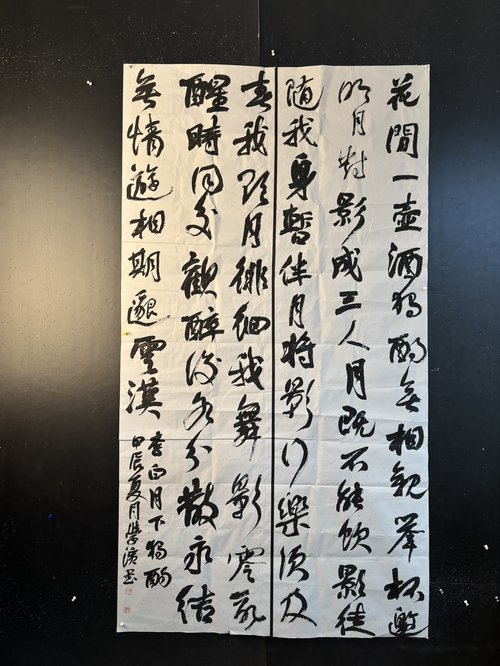 花間一壺酒独酌無相親舉杯邀
明月對影成三人月既不解飲影徒
随我身暫伴月將影行樂須及
春我歌月徘徊我舞影零亂
醒時同交歡醉後各分散永結
無情遊相期邈雲漢
李白月下独酌
甲辰夏月書